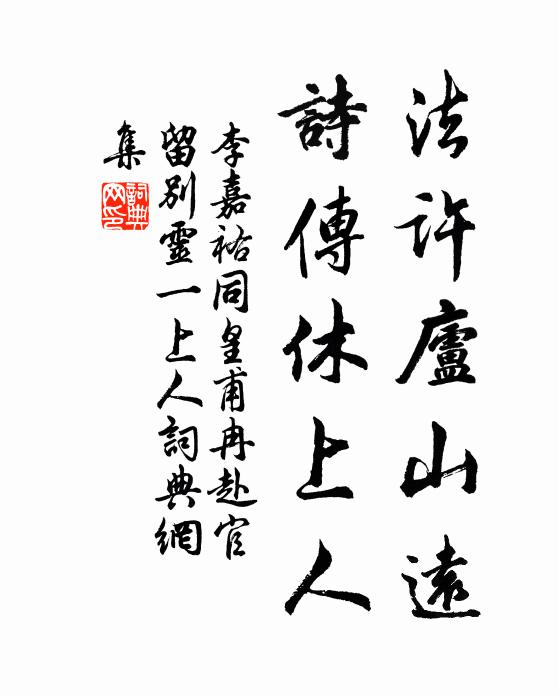 法許廬山遠
詩傳休上人
李嘉祐同皇甫冉赴官
留別靈一上人詞典網
集
詞典
网印